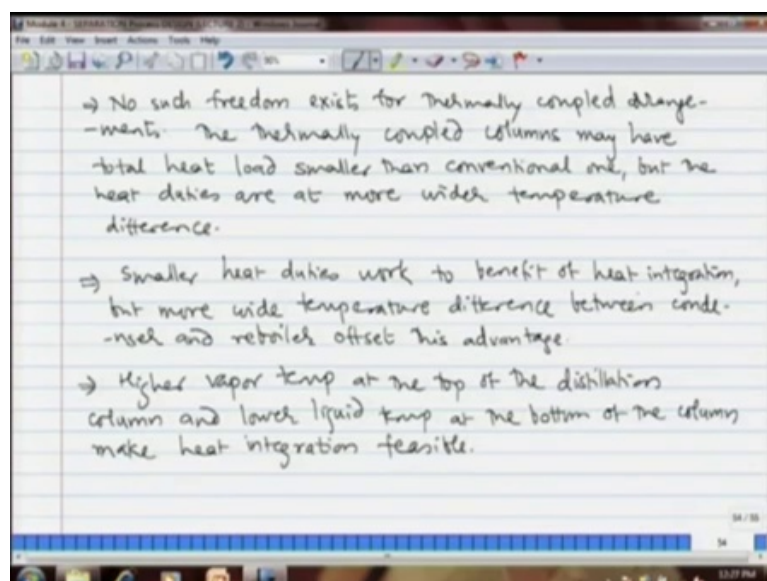 Module 4 : SEPARATION Process DESIGN (LECTURE 2) - Windows Journal
File Edit View Insert Actions Tools Help
⇒ No such freedom exists for thermally coupled arrange-
-ments. The thermally coupled columns may have
total heat load smaller than conventional one, but the
heat duties are at more wider temperature
difference.
⇒ Smaller heat duties work to benefit of heat integration,
but more wide temperature difference between conde-
-nser and reboiler offset this advantage.
⇒ Higher vapor temp at the top of the distillation
column and lower liquid temp at the bottom of the column
make heat integration feasible.
54 / 55
54
12:27 PM